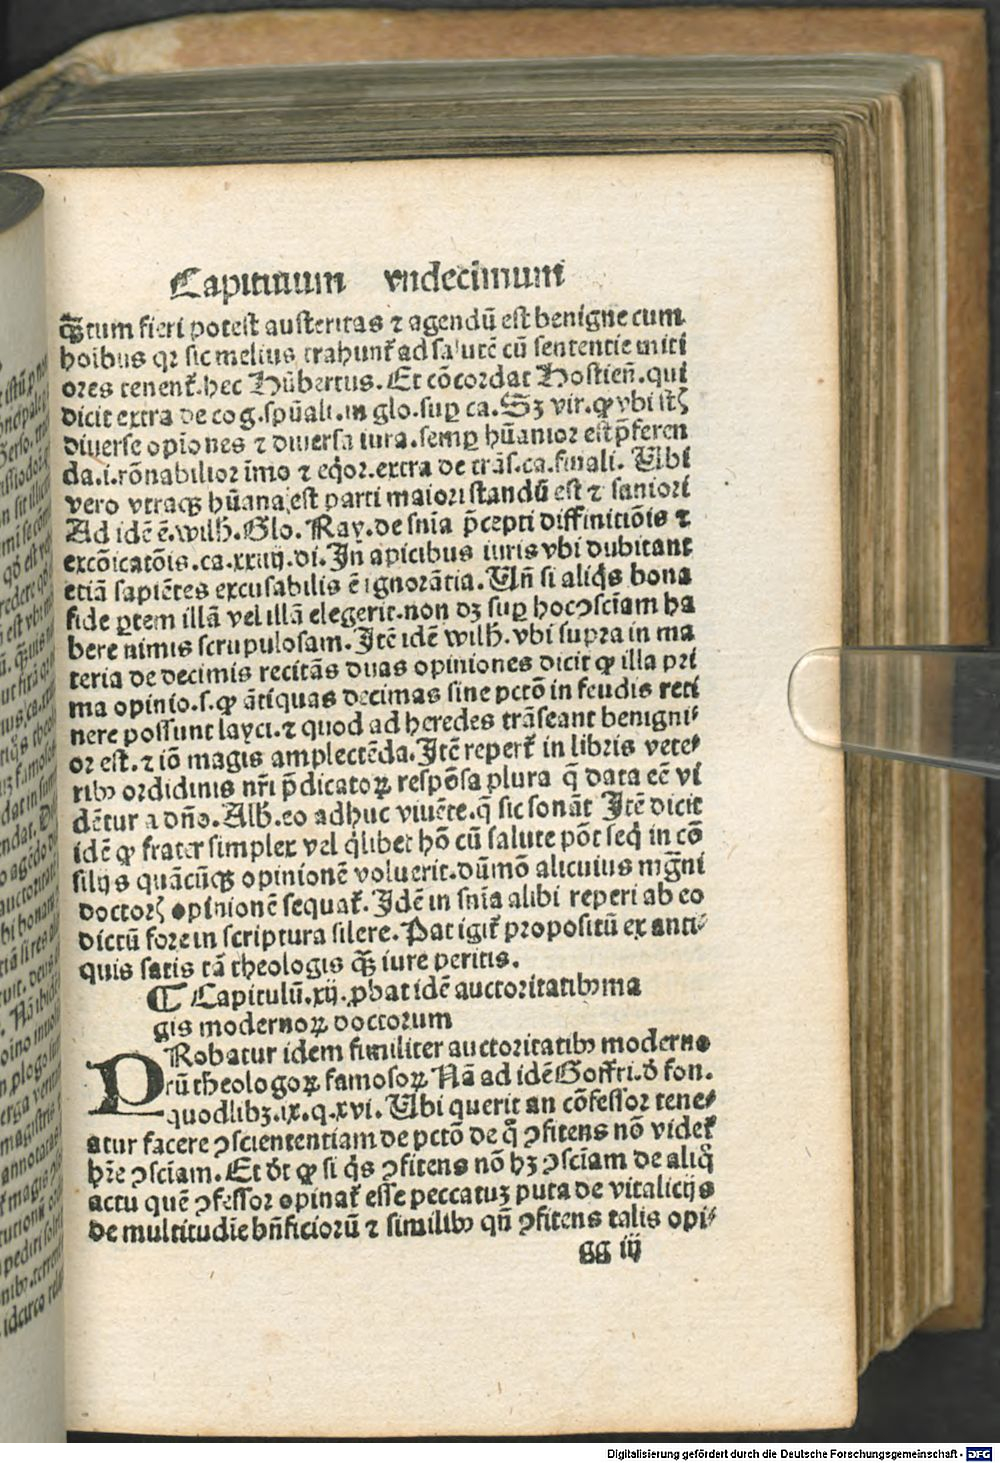 Capitulum vndecimum
q̃stum fieri potest austeritas ⁊ agendũ est benigne cum
hoibus qꝛ sic melius trahunt̃ ad salutẽ cũ sententie miti
ores tenent̃. hec Hũbertus. Et cõcordat Hostieñ. qui
dicit extra de cog. spũali. in glo. suꝑ ca. Sꝫ vir. ꝙ vbi st̃
diuerse opiones ⁊ diuersa iura. semꝑ hũanior est p̃feren
da .i. rõnabilior ĩmo ⁊ eq̃or. extra de trãs. ca. finali. Ubi
vero vtraqꝫ hũana est parti maiori standũ est ⁊ saniori
Ad idẽ ẽ. wilh̃. Glo. Ray. de sñia p̃cepti diffinitiõis ⁊
excõicatõis. ca. xxiiij. di. Iñ apicibus iuris vbi dubitant
etiã sapiẽtes excusabilis ẽ ignorãtia. Uñ si aliq̃s bona
fide ꝑtem illã vel illã elegerit. non dꝫ suꝑ hoc ꝯsciam ha
bere nimis scrupulosam. Itẽ idẽ wilh̃. vbi supra in ma
teria de decimis recitãs duas opiniones dicit ꝙ illa pri
ma opinio .s. ꝙ ãtiquas decimas sine pctõ in feudis reti
nere possunt layci. ⁊ quod ad heredes trãseant benigni⸗
or est. ⁊ iõ magis amplectẽda. Itẽ repert̃ in libris vete⸗
ribꝰ ordidinis nr̃i p̃dicatoꝝ respõsa plura q̃ data eẽ vi
dẽtur a dño. Alb̃. eo adhuc viuẽte. q̃ sic sonãt Itẽ dicit
idẽ ꝙ frater simplex vel q̃libet hõ cũ salute põt seq̃ in cõ
silijs quãcũqꝫ opinionẽ voluerit. dũmõ alicuius mg̃ni
doctorꝭ opinionẽ sequat̃. Idẽ in sñia alibi reperi ab eo
dictũ fore in scriptura silere. Pat igit̃ propositũ ex anti⸗
quis satis tã theologis q̃ꝫ iure peritis.
¶ Capitulũ. xij. ꝓbat idẽ auctoritatibꝰ ma
gis modernoꝝ doctorum
PRobatur idem similiter auctoritatibꝰ moderno
rũ theologoꝝ famosoꝝ. Nã ad idẽ Goffri. d̓ fon.
quodlibꝫ. ix. q. xvi. Ubi querit an cõfessor tene⸗
atur facere ꝯscientẽntiam de pctõ de q̃ ꝯfitens nõ videt̃
hr̃e ꝯsciam. Et d̓t ꝙ si q̃s ꝯfitens nõ hꝫ ꝯsciam de aliq̃
actu quẽ ꝯfessor opinat̃ esse peccatuꝫ puta de vitalicijs
de multitudĩe bñficiorũ ⁊ similibꝰ qñ ꝯfitens talis opi⸗
gg iij
Digitalisierung gefördert durch die Deutsche Forschungsgemeinschaft - DFG